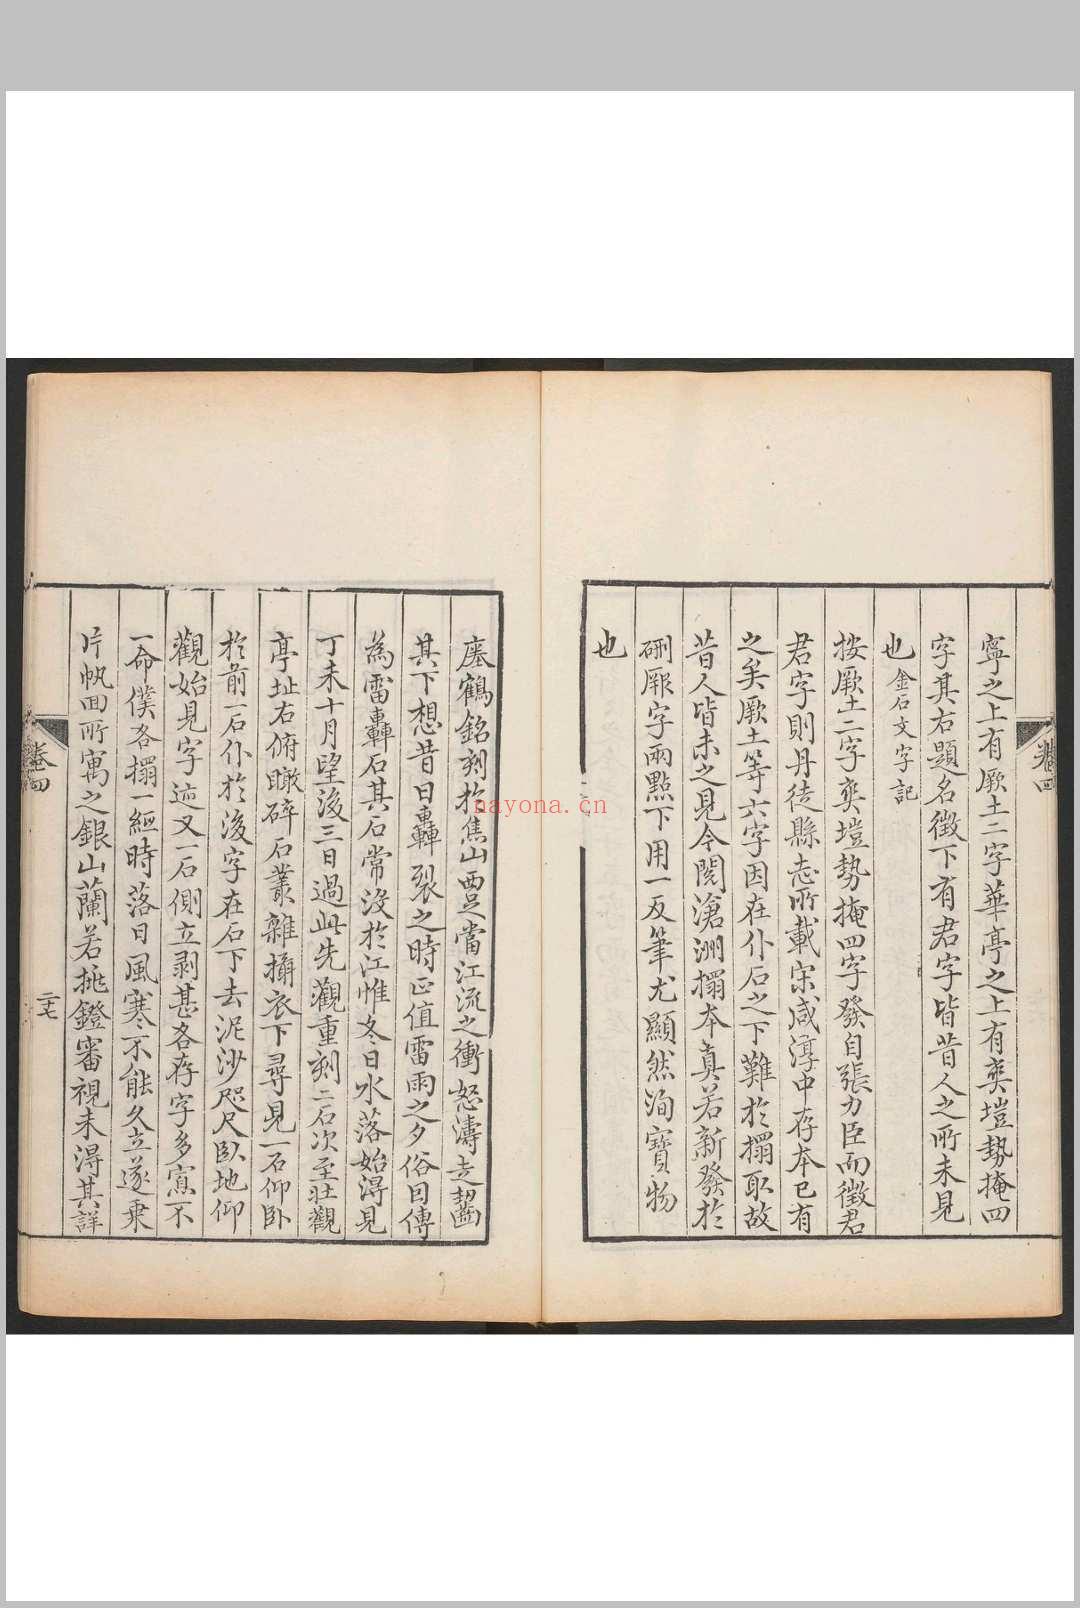 卷四
寧之上有厥土二字華亭之上有爽塏勢掩四
字其右題名徵下有君字皆昔人之所未見
也金石文字記
按厥土二字爽塏勢掩四字發自張力臣而徵君
君字則丹徒縣志所載宋咸淳中存本已有
之矣厥土等六字因在仆石之下難於搨取故
昔人皆未之見今閱滄洲搨本真若新發於
硎厥字兩點下用一反筆尤顯然洵寶物
也
瘞鶴銘刻於焦山西足當江流之衝怒濤走齧
其下想昔日轟裂之時正值雷雨之夕俗因傳
為雷轟石其石常沒於江惟冬日水落始得見
丁未十月望後三日過此先觀重刻二石次至壯觀
亭址右俯瞰碎石叢雜攝衣下尋見一石仰臥
於前一石仆於後字在石下去泥沙咫尺臥地仰
觀始見字迹又一石側立剥甚各存字多寡不
一命僕各搨一紙時落日風寒不能久立遂乘
片帆回所寓之銀山蘭若挑鐙審視未得其詳
卷四
二十七
nayona.cn